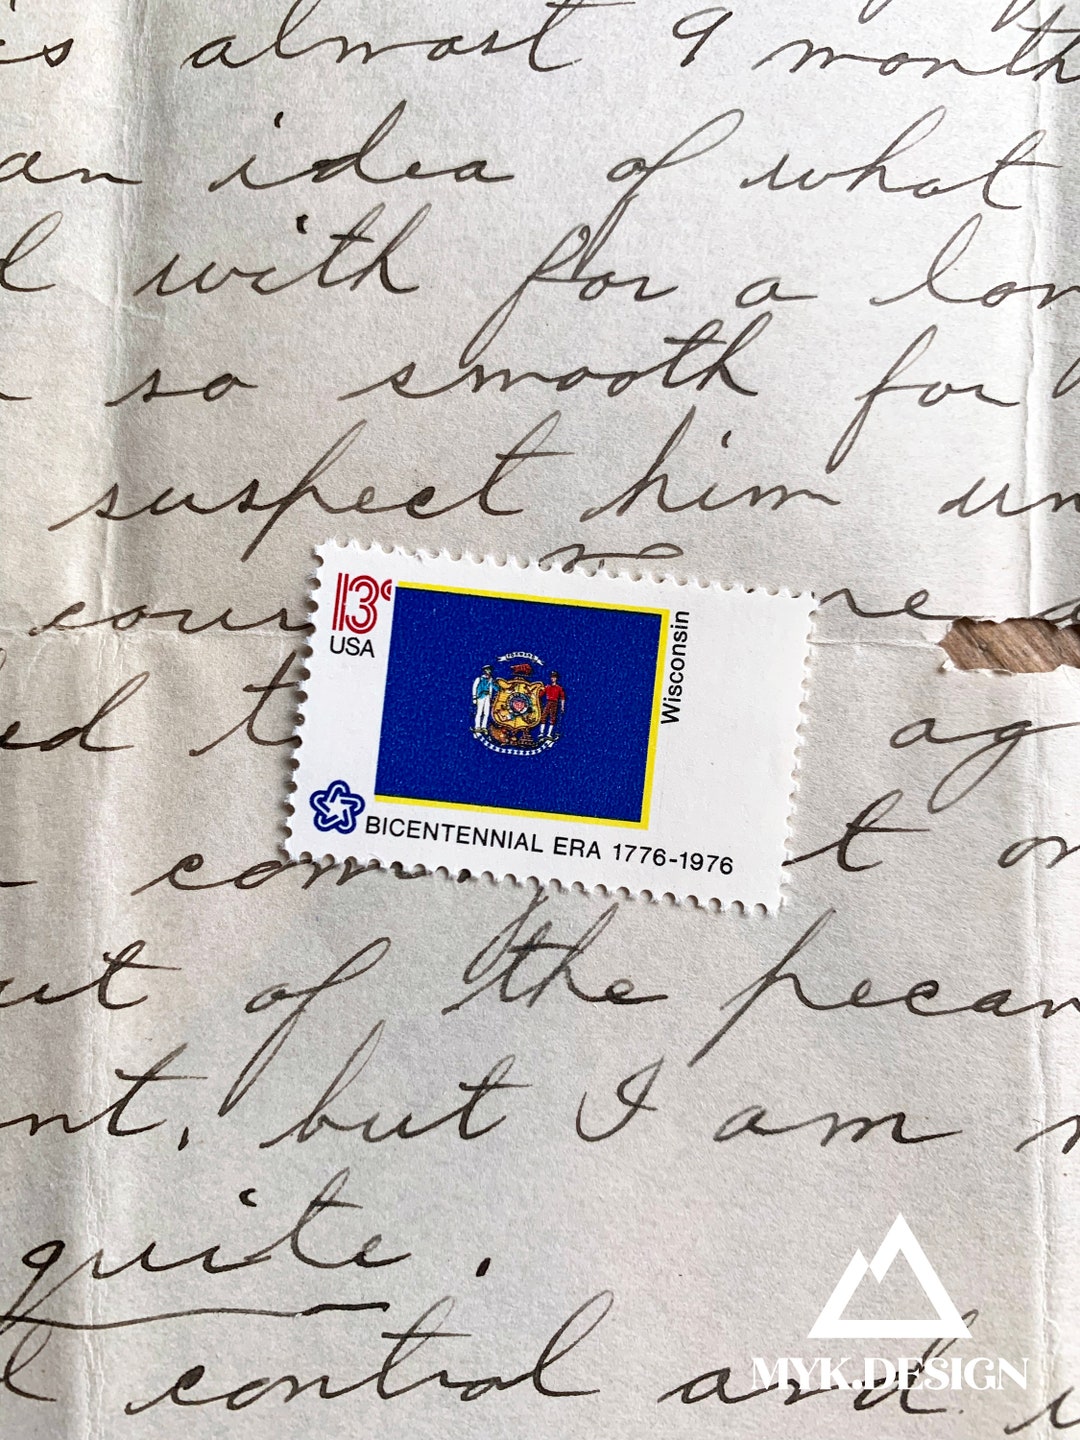 is almost 9 month
an idea of what
d with for a lon
so smooth for
suspect him un
cour re a
13c
USA
Wisconsin
FORWARD
BICENTENNIAL ERA 1776-1976
ed t ag
com t on
ut of the pecan
nt, but I am n
quite.
l control and
MYK.DESIGN